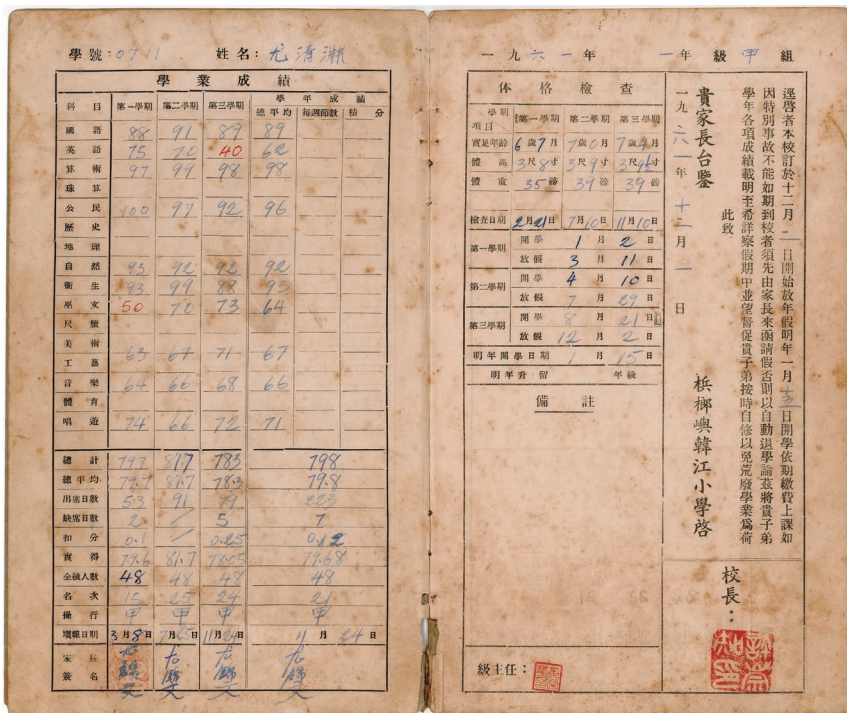 學號：0711 姓名：尤清
學業成績
科目 第一學期 第二學期 第三學期 學年成績
總平均 每週節數 積分
國語 88 91 89 89
英語 75 70 40 62
算術 97 99 98 98
珠算
公民 100 97 92 96
歷史
地理
自然 93 92 92 92
衛生 93 99 88 93
巫文 50 70 73 64
尺牘
美術
工藝 63 67 71 67
音樂 64 66 68 66
體育
唱遊 74 66 72 71
總計 797 817 783 798
總平均 79.7 81.7 78.3 79.8
出席日數 53 91 79 223
缺席日數 2 / 5 7
扣分 0.1 / 0.25 0.12
實得 79.6 81.7 78.05 79.68
全級人數 48 48 48 48
名次 15 25 24 21
操行 甲 甲 甲 甲
填報日期 3月8日 7月25日 11月24日 11月24日
家長簽名
一九六一年 一年級甲組
体格檢查
學期 項目 第一學期 第二學期 第三學期
實足年齡 6歲7月 7歲0月 7歲4月
體高 3尺8寸 3尺9寸 3尺9½寸
體重 35磅 39磅 39磅
檢查日期 2月21日 7月10日 11月10日
第一學期 開學 1月2日
放假 3月11日
第二學期 開學 4月10日
放假 7月29日
第三學期 開學 8月21日
放假 12月2日
明年開學日期 1月15日
明年升留 年級
備註
級主任：
逕啓者本校訂於十二月二日開始放年假明年一月十五日開學依期繳費上課如
因特別事故不能如期到校者須先由家長來函請假否則以自動退學論茲將貴子弟
學年各項成績載明至希詳察假期中並望督促貴子弟按時自修以免荒廢學業爲荷
此致
貴家長台鑒
檳榔嶼韓江小學啓
一九六一年十二月一日
校長：